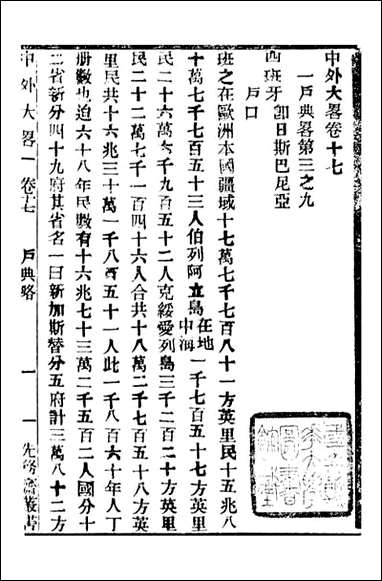 中外大畧卷十七
一戶典畧第三之九
西班牙 卽日斯巴尼亞
戶口
班之在歐洲本國疆域十七萬七千七百八十一方英里民十五兆八
十萬七千七百五十三人伯列阿立島在地中海一千七百五十七方英里
民二十六萬六千九百五十二人克綏愛列島三千二百二十方英里
民二十二萬七千一百四十六人合共十八萬二千七百五十八方英
里民共十六兆三十萬一千八百五十一人此一千八百六十年人丁
册數也迨六十八年民數有十六兆七十三萬二千五百二人國分十
二省新分四十九府其省名一曰新加斯替分五府計三萬八十二方
中外大畧 卷十七 戶典略 一 先 齋叢書